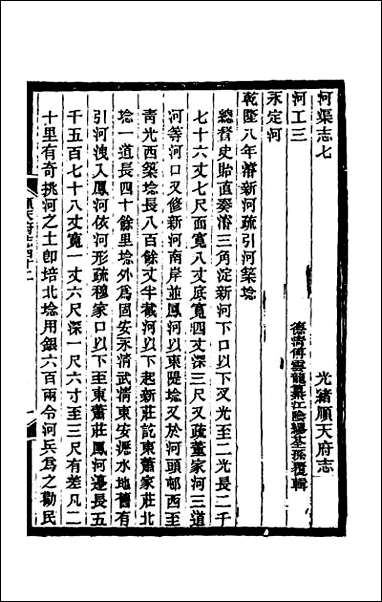 河渠志七
光緒順天府志
河工三
德淸傅雲龍纂江陰繆荃孫覆輯
永定河
乾隆八年濬新河疏引河築埝
總督史貽直奏濬三角淀新河下口以下叉光至二光長二千
七十六丈七尺面寬八丈底寬四丈深三尺又疏董家河三道
河等河口又修新河南岸並鳳河以東隄埝又於河頭邨西至
靑光西築埝長八百餘丈半截河以下起新莊訖東蕭家莊北
埝一道長四十餘里埝外爲固安永淸武淸東安瀝水地舊有
引河洩入鳳河依河形疏穆家口以下至東蕭莊鳳河邊長五
千五百七十八丈寬一丈六尺深一尺六寸至三尺有差凡二
十里有奇挑河之土卽培北埝用銀六百兩令河兵爲之勸民